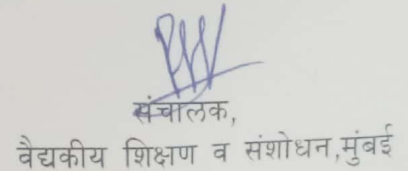 संचालक,
वैद्यकीय शिक्षण व संशोधन,मुंबई